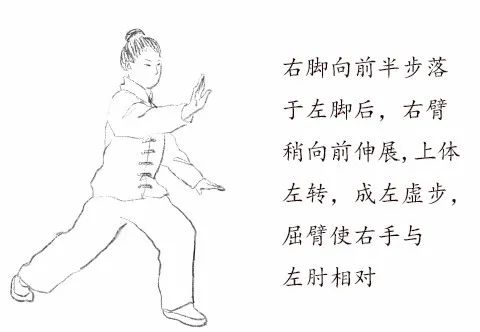 右脚向前半步落
于左脚后，右臂
稍向前伸展，上体
左转，成左虚步，
屈臂使右手与
左肘相对